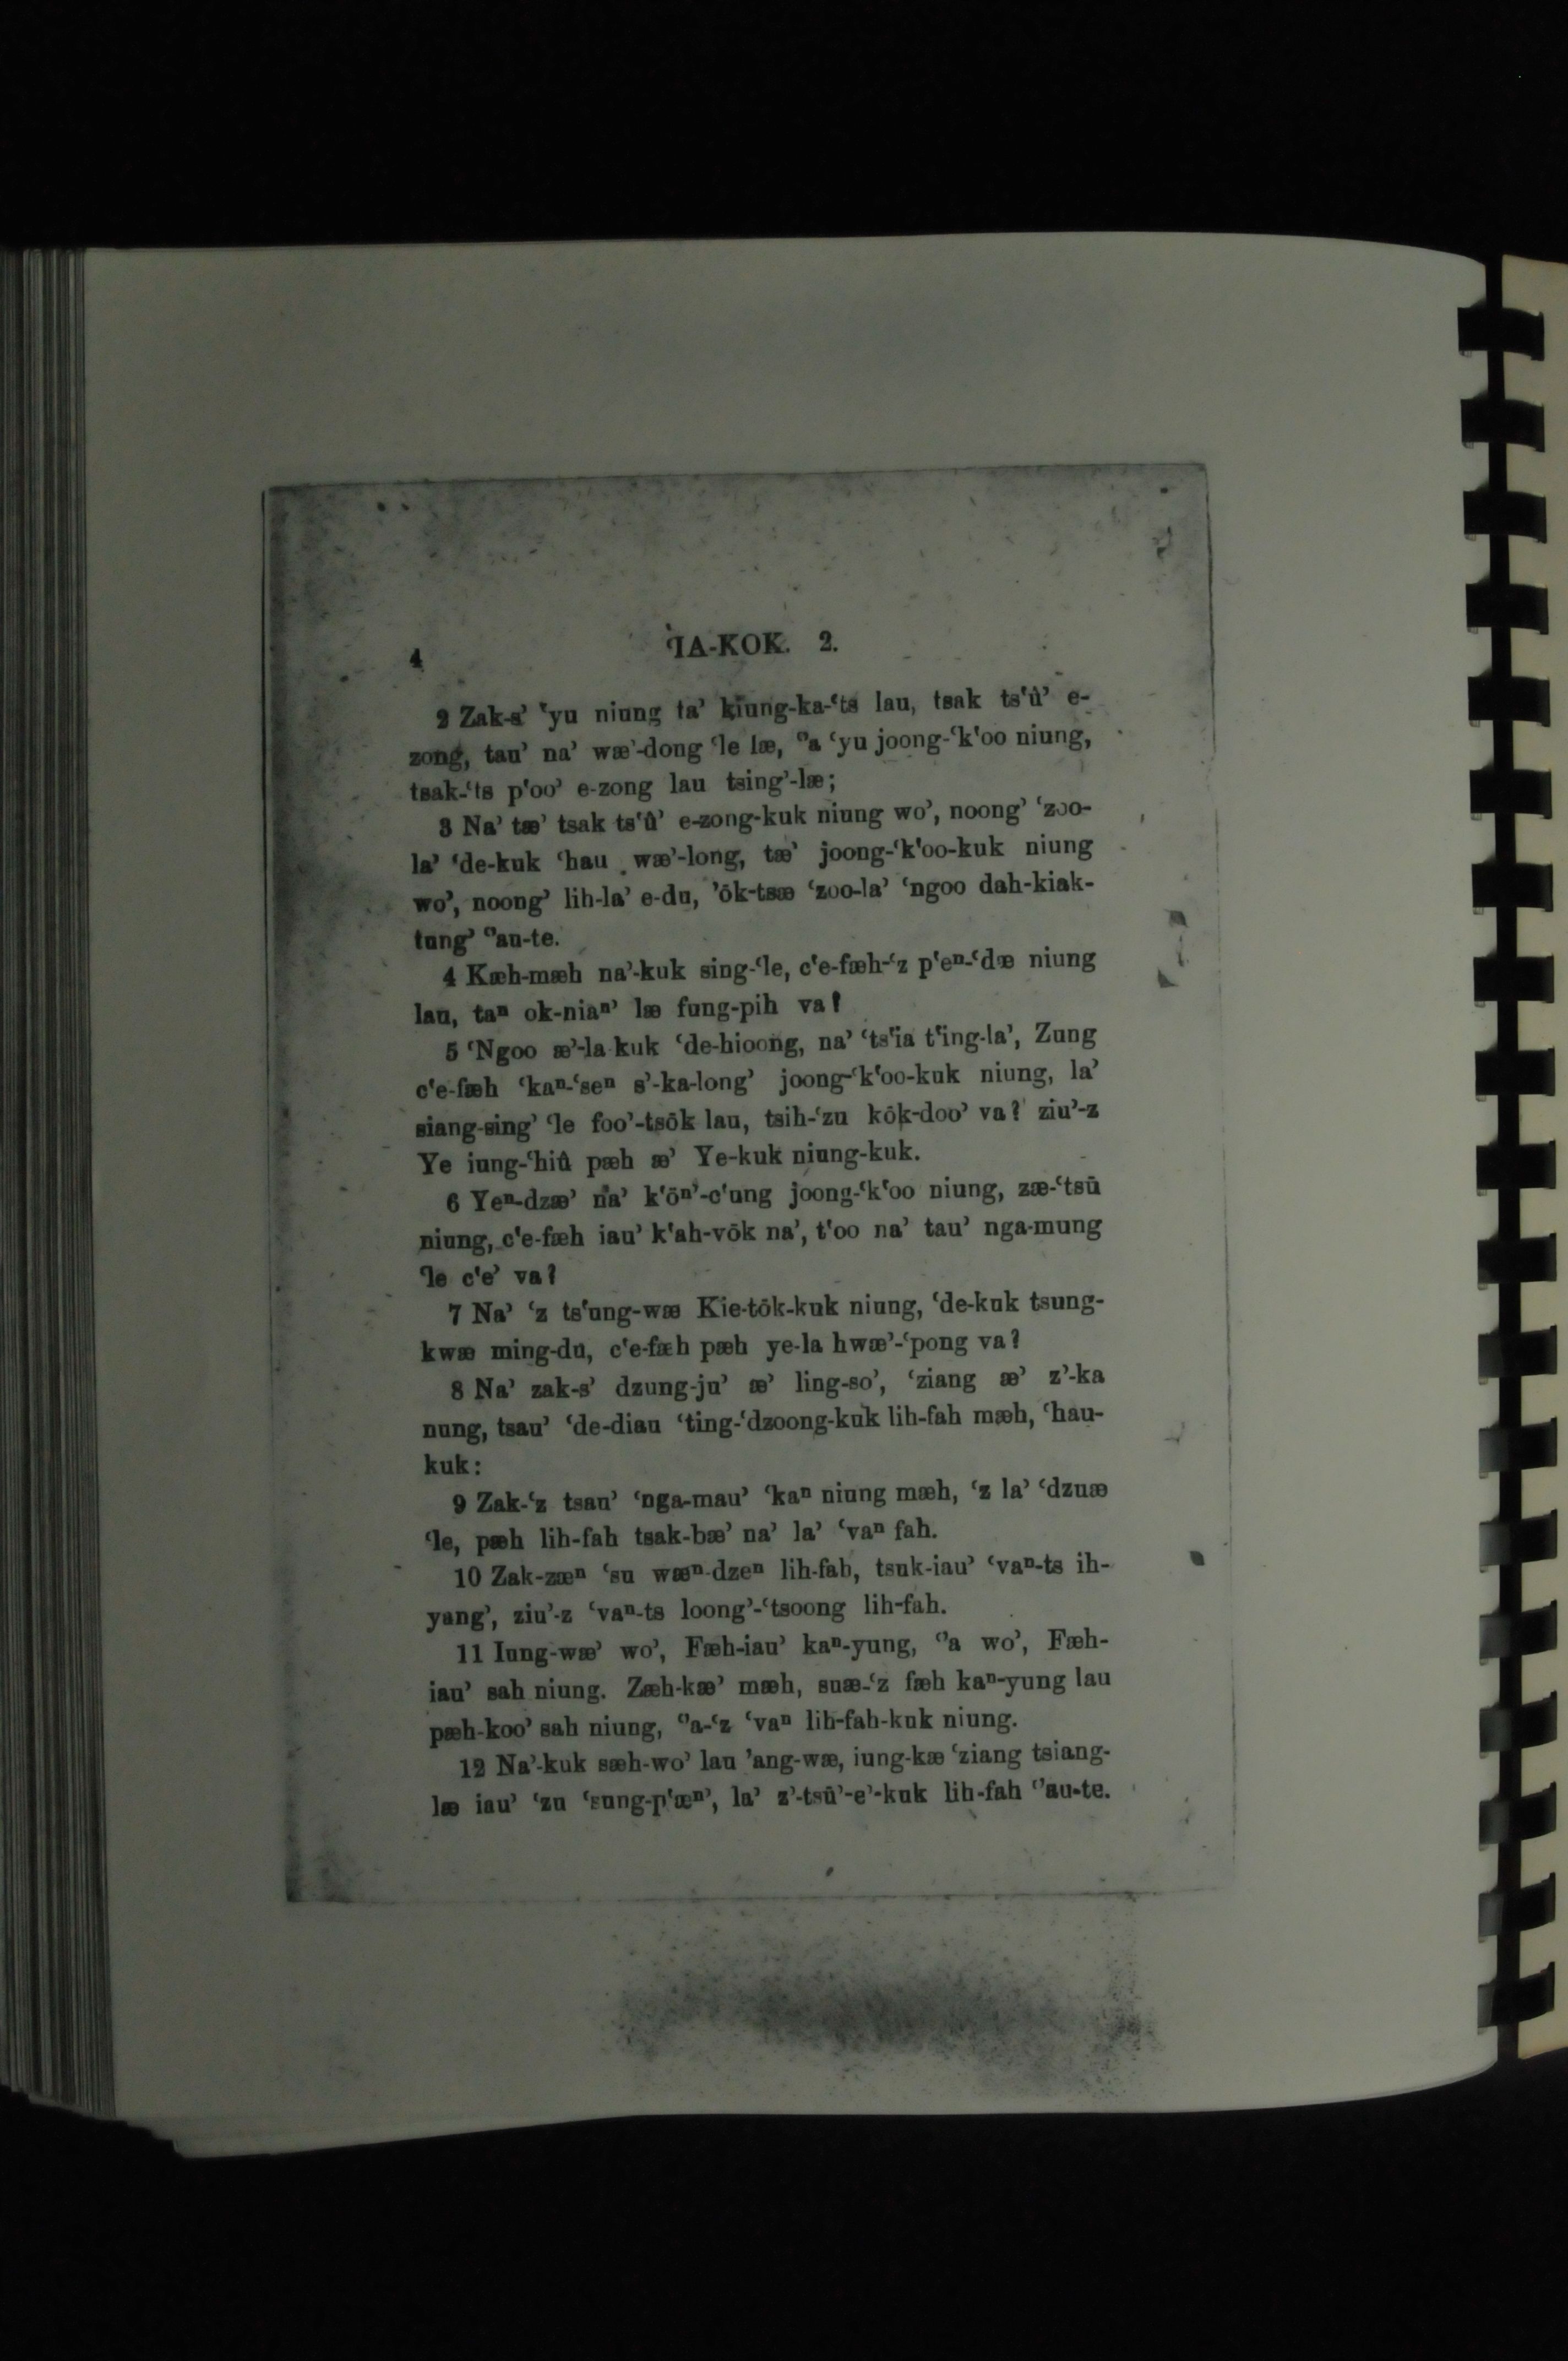 4 ʻIA-KOK. 2.
2 Zak-s’ ʻyu niung ta’ kiung-ka-ʻts lau, tsak tsʻû’ e-
zong, tau’ na’ wæ’-dong ʻle læ, ʻ’a ʻyu joong-ʻkʻoo niung,
tsak-ʻts pʻoo’ e-zong lau tsing’-læ;
3 Na’ tæ’ tsak tsʻû’ e-zong-kuk niung wo’, noong’ ʻzoo-
la’ ʻde-kuk ʻhau wæ’-long, tæ’ joong-ʻkʻoo-kuk niung
wo’, noong’ lih-la’ e-du, ’ōk-tsæ ʻzoo-la’ ʻngoo dah-kiak-
tung’ ʻ’au-te.
4 Kæh-mæh na’-kuk sing-ʻle, cʻe-fæh-ʻz pʻeⁿ-ʻdæ niung
lau, taⁿ ok-niaⁿ’ læ fung-pih va?
5 ʻNgoo æ’-la-kuk ʻde-hioong, na’ ʻtsʻia tʻing-la’, Zung
cʻe-fæh ʻkaⁿ-ʻseⁿ s’-ka-long’ joong-ʻkʻoo-kuk niung, la’
siang-sing’ ʻle foo’-tsōk lau, tsih-ʻzu kōk-doo’ va? ziu’-z
Ye iung-ʻhiû pæh æ’ Ye-kuk niung-kuk.
6 Yeⁿ-dzæ’ na’ kʻōⁿ’-cʻung joong-ʻkʻoo niung, zæ-ʻtsū
niung, cʻe-fæh iau’ kʻah-vōk na’, tʻoo na’ tau’ nga-mung
ʻle cʻe’ va?
7 Na’ ʻz tsʻung-wæ Kie-tōk-kuk niung, ʻde-kuk tsung-
kwæ ming-du, cʻe-fæh pæh ye-la hwæ’-ʻpong va?
8 Na’ zak-s’ dzung-ju’ æ’ ling-so’, ʻziang æ’ z’-ka
nung, tsau’ ʻde-diau ʻting-ʻdzoong-kuk lih-fah mæh, ʻhau-
kuk:
9 Zak-ʻz tsau’ ʻnga-mau’ ʻkaⁿ niung mæh, ʻz la’ ʻdzuæ
ʻle, pæh lih-fah tsak-bæ’ na’ la’ ʻvaⁿ fah.
10 Zak-zæⁿ ʻsu wæⁿ-dzeⁿ lih-fah, tsuk-iau’ ʻvaⁿ-ts ih-
yang’, ziu’-z ʻvaⁿ-ts loong’-ʻtsoong lih-fah.
11 Iung-wæ’ wo’, Fæh-iau’ kaⁿ-yung, ʻ’a wo’, Fæh-
iau’ sah niung. Zæh-kæ’ mæh, suæ-ʻz fæh kaⁿ-yung lau
pæh-koo’ sah niung, ʻ’a-ʻz ʻvaⁿ lih-fah-kuk niung.
12 Na’-kuk sæh-wo’ lau ’ang-wæ, iung-kæ ʻziang tsiang-
læ iau’ ʻzu ʻsung-pʻæⁿ’, la’ z’-tsū’-e’-kuk lih-fah ʻ’au-te.